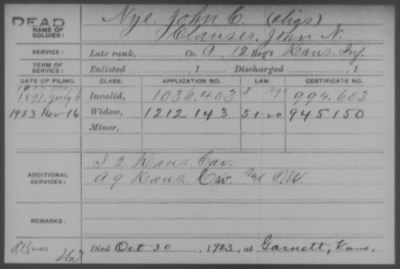 DEAD
NAME OF SOLDIER:
Nye, John C. (alias)
Clauser, John N.
SERVICE:
Late rank, Co. A, 12 Reg't Kans. Inf.
TERM OF SERVICE:
Enlisted , 1 Discharged , 1
DATE OF FILING. CLASS. APPLICATION NO. LAW. CERTIFICATE NO.
1891 July 6 Invalid, 1036.403 994.603
1923 Nov 16 Widow, 1212 143 5-1-20 945150
Minor,
ADDITIONAL SERVICES:
I 2 Kans. Cav.
A 9 Kans. Cav.
REMARKS:
Died Oct 30, 1923, at Garnett, Kans.